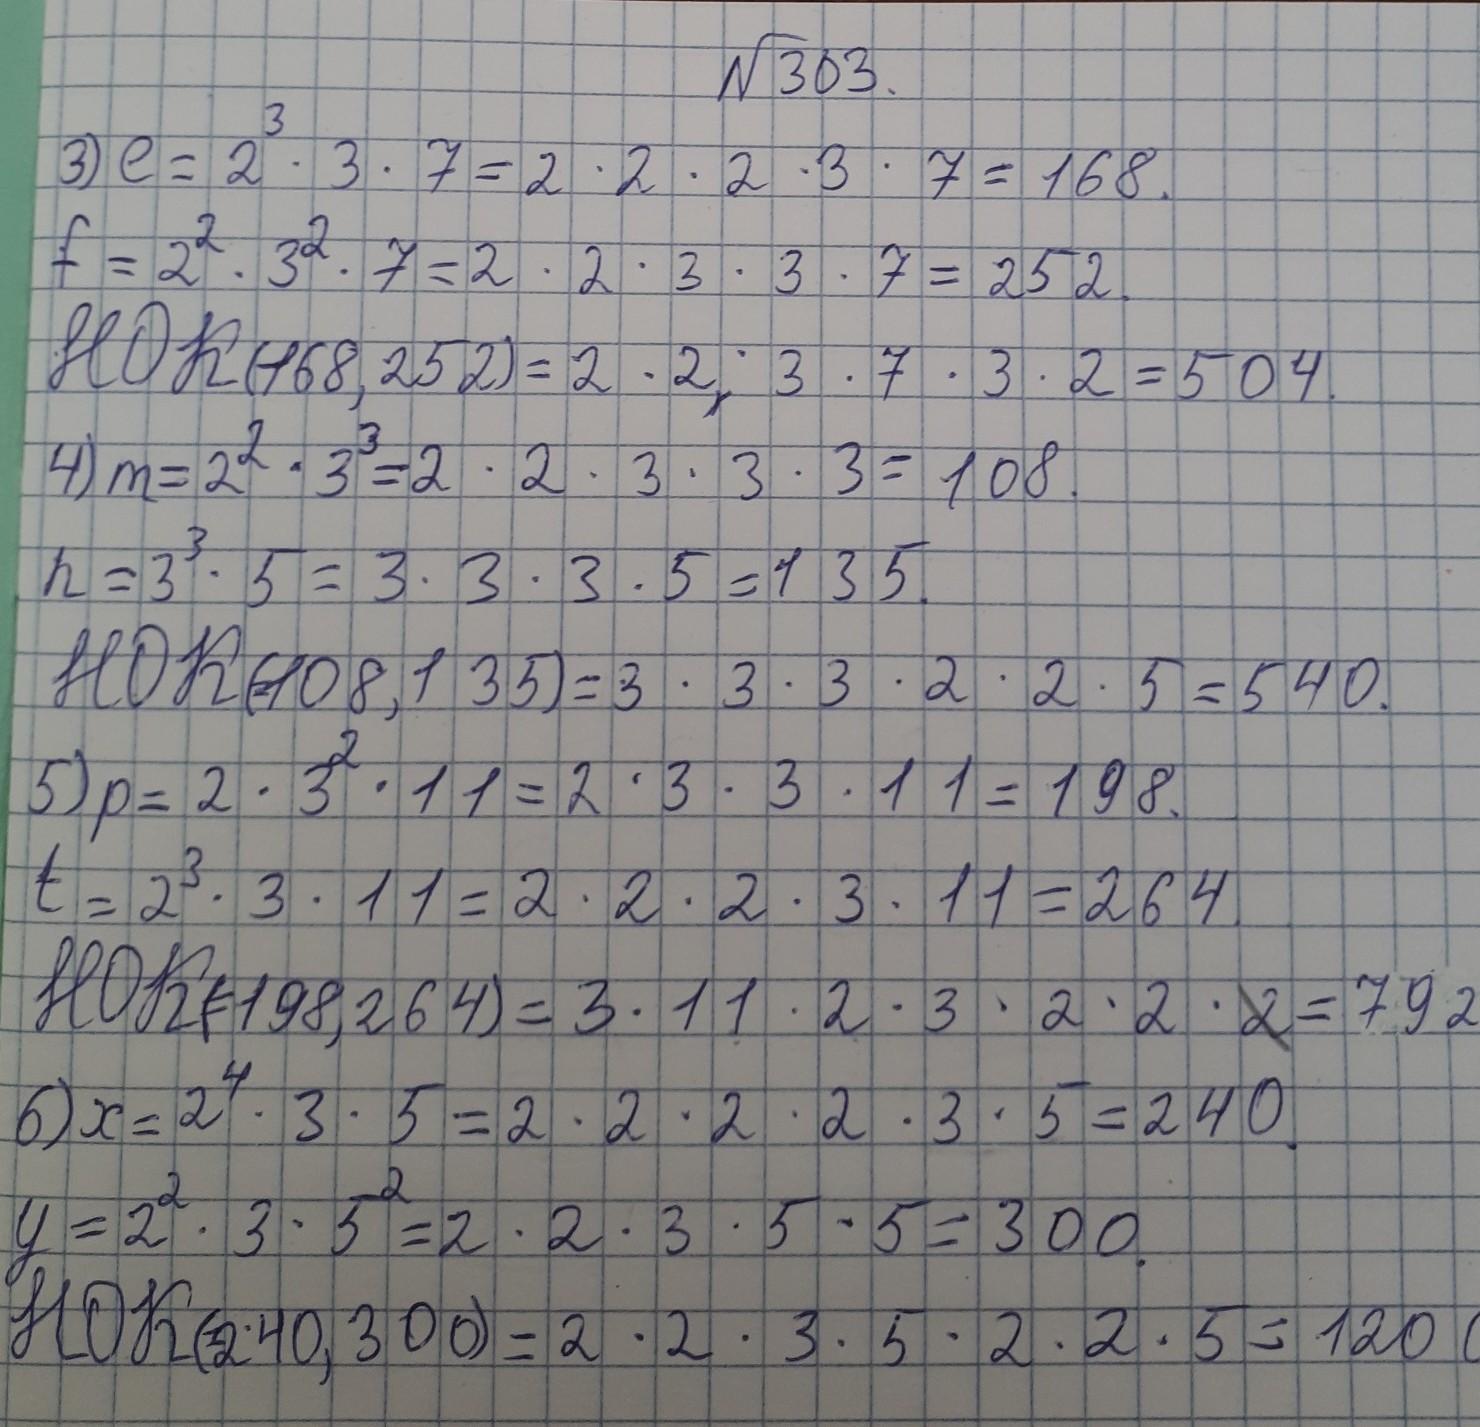 №303.
3) e = 2³ · 3 · 7 = 2 · 2 · 2 · 3 · 7 = 168.
f = 2² · 3² · 7 = 2 · 2 · 3 · 3 · 7 = 252.
НОК(168, 252) = 2 · 2 · 3 · 7 · 3 · 2 = 504.
4) m = 2² · 3³ = 2 · 2 · 3 · 3 · 3 = 108.
n = 3³ · 5 = 3 · 3 · 3 · 5 = 135.
НОК(108, 135) = 3 · 3 · 3 · 2 · 2 · 5 = 540.
5) p = 2 · 3² · 11 = 2 · 3 · 3 · 11 = 198.
t = 2³ · 3 · 11 = 2 · 2 · 2 · 3 · 11 = 264.
НОК(198, 264) = 3 · 11 · 2 · 3 · 2 · 2 · 2 = 792
6) x = 2⁴ · 3 · 5 = 2 · 2 · 2 · 2 · 3 · 5 = 240.
y = 2² · 3 · 5² = 2 · 2 · 3 · 5 · 5 = 300.
НОК(240, 300) = 2 · 2 · 3 · 5 · 2 · 2 · 5 = 1200